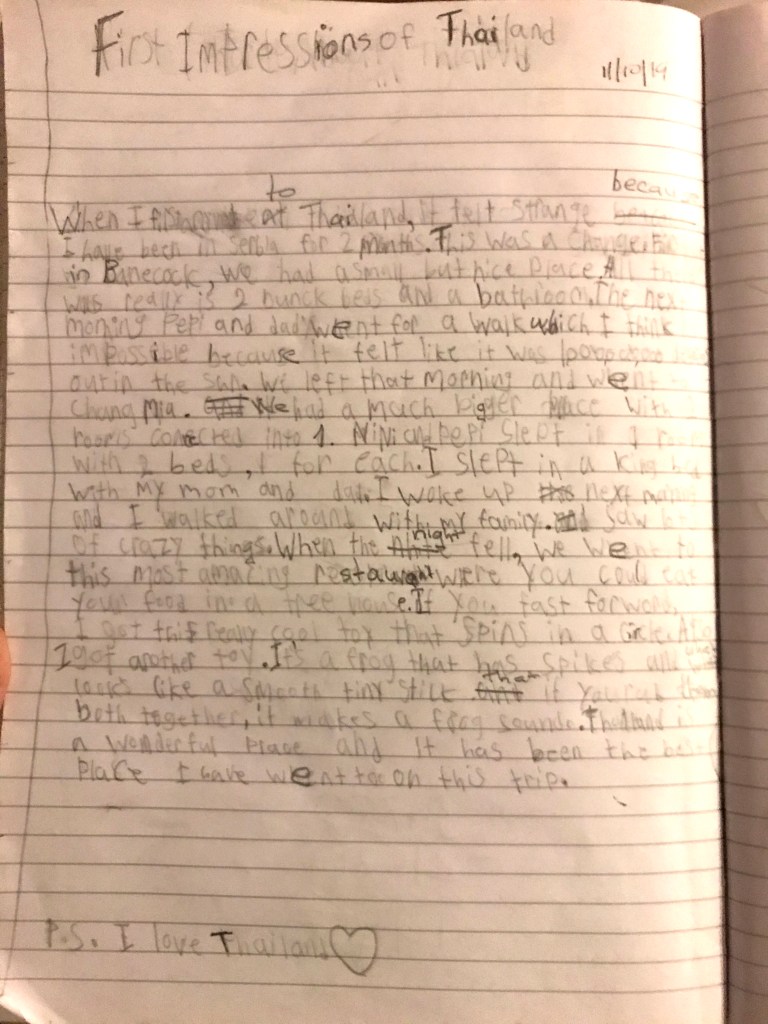 First Impressions of Thailand
11/10/19
to becau
When I at Thailand, it felt strange
I have been in Serbia for 2 months. This was a change.
in Banecock, we had a small but nice place. All
was really is 2 bunck beds and a bathroom. The nex
morning Pepi and dad went for a walk which I think
impossible because it felt like it was
out in the sun. We left that morning and went
Chang Mia. We had a much bigger place with
rooms conected into 1. Nini and Pepi slept in 1
with 2 beds, 1 for each. I slept in a king
with my mom and dad. I woke up next
and I walked around with my family. saw
night
of crazy things. When the fell, we went to
this most amazing restaurant were you could eat
your food in a tree house. If you fast forword,
I got this really cool toy that spins in a circle.
I got another toy. It's a frog that has spikes and
that
looks like a smooth tiny stick if you rub
both together, it makes a frog sound. Thailand is
a wonderful place and it has been the
place I have went to on this trip.
P.S. I love Thailand